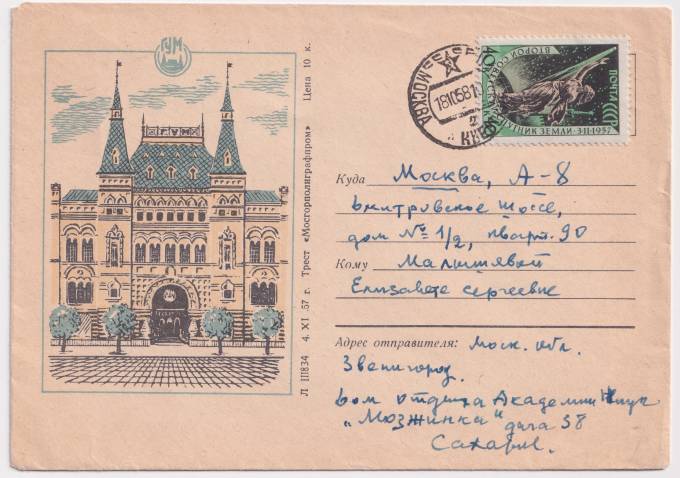 ГУМ
ГУМ
Л 111834 4. XI 57 г. Трест «Мосгорполиграфпром» Цена 10 к.
МОСКВА
181058
ВТОРОЙ СОВЕТСКИЙ СПУТНИК ЗЕМЛИ·3·II·1957
ПОЧТА СССР
40 коп
Куда Москва, А-8
Дмитровское шоссе,
дом № 1/2, кварт. 90
Кому Малышевой
Елизавете Сергеевне
Адрес отправителя: Моск. обл.
Звенигород.
Дом отдыха Академии Наук
„Мозжинка" дача 38